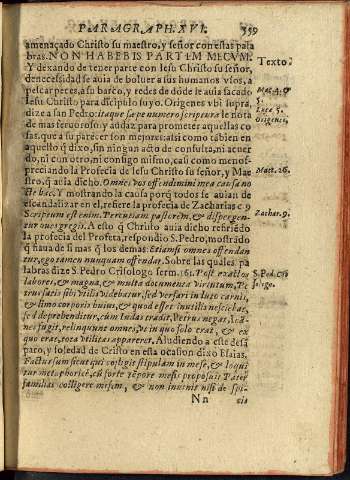 PARAGRAPH. XVI. 559
amenaçado Christo su maestro, y señor con estas pala
bras. NON HABEBIS PARTEM MECVM.
Texto.
Y dexando de tener parte con Iesu Christo su señor,
de necessidad se auia de boluer a sus humanos vsos, a
pescar peces, a su barco, y redes de dóde le auia sacado
Mat. 4. &
Iesu Christo para discipulo suyo. Origenes vbi supra,
Luc. 5.
dize a san Pedro: itaque sæpe numero scriptura le nota
Origenes.
de mas feruoroso y audaz para prometer aquellas co
sas, que a su parecer son mejores: assi como tábien en
aquesto q̃ dixo, sin ningun acto de consulta, ni acuer
do, ni cun otro, ni consigo mismo, casi como menos-
preciando la Profecia de Iesu Christo su señor, y Mae
Matt. 26.
stro, q̃ auia dicho. Omnes vos offendimini mea causa no
cte hac. Y mostrando la causa porq̃ todos se auian de
escandalizar en el, refiere la profecia de Zacharias c. 9
Zachar. 9.
Scriptum est enim. Percutiam pastorem, & dispergen-
tur oues gregis. A esto q̃ Christo auia dicho refiriédo
la profecia del Profeta, respondio S. Pedro, mostrado
q̃ haura de si mas q̃ dos demas: Etiamsi omnes offendan
tur, ego tamen nunquam offendar. Sobre las quales pa
labras dize S. Pedro Crisologo serm. 161. Post exactos
S. Ped. Cri
labores, & magna, & multa documenta virtutum, Pe
sologo.
trus satis sibi vtilis videbatur, sed versari in luto carnis,
& limo corporis huius, & quod esset inutilis nesciebat,
sed deprehenditur, cum Iudas tradit, Petrus negat, Ioã-
nes fugit, relinquunt omnes, vt in quo solo erat, & ex
quo erat, tota vtilitas appareret. Aludiendo a este desá
paro, y soledad de Cristo en esta ocasion dixo Esaias,
Factus sum sicut qui colligit stipulam in messe, & loqui
tur metaphoricè, cũ forte tẽpore messis proposuit Pater
familias colligere messem, & non inuenit nisi de spi-
Nn cis